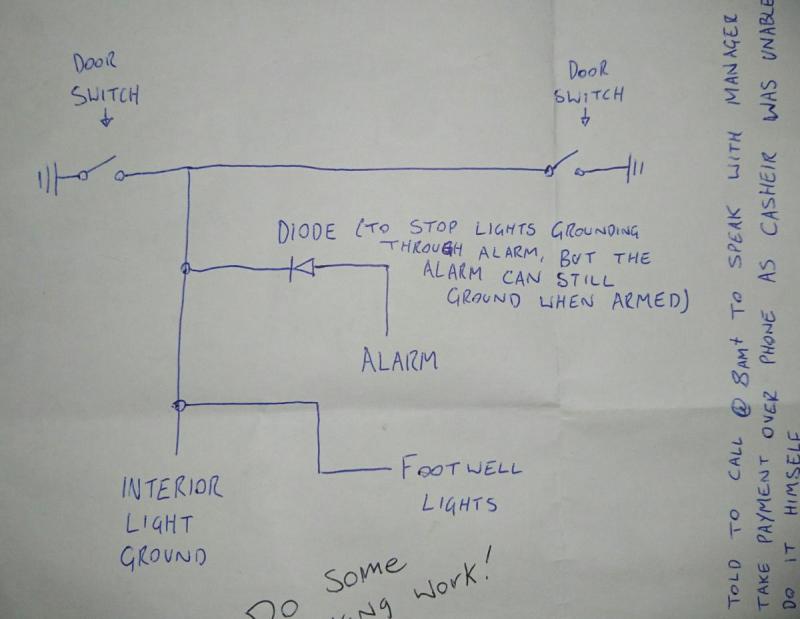 DOOR
SWITCH
DOOR
SWITCH
DIODE (TO STOP LIGHTS GROUNDING
THROUGH ALARM, BUT THE
ALARM CAN STILL
GROUND WHEN ARMED)
ALARM
FOOTWELL
LIGHTS
INTERIOR
LIGHT
GROUND
DO SOME
WORK!
TOLD TO CALL @ 8am+ TO SPEAK WITH MANAGER
TAKE PAYMENT OVER PHONE AS CASHEIR WAS UNABLE
DO IT HIMSELF